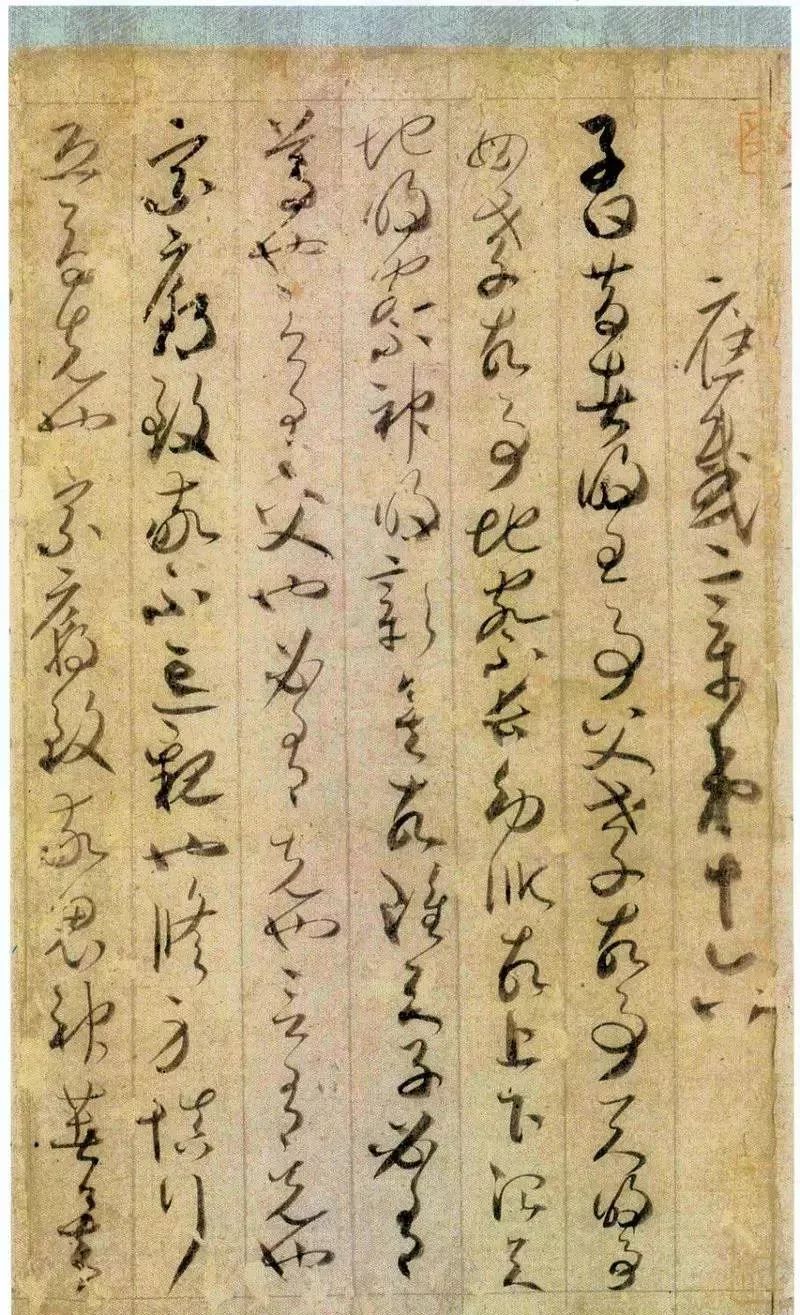 應感章第十六
子曰昔者明王事父孝故事天明事
母孝故事地察長幼順故上下治天
地明察神明彰矣故雖天子必有
尊也言有父也必有先也言有兄也
宗廟致敬不忘親也脩身慎行
恐辱先也宗廟致敬鬼神著矣